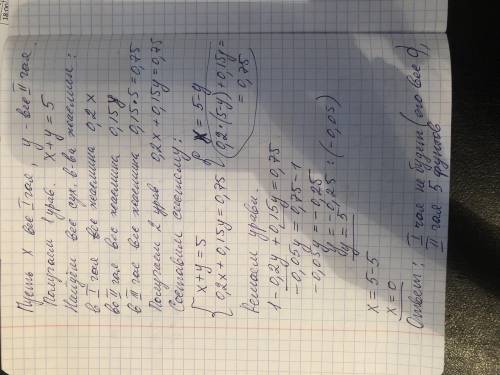 Пусть x вес I чая, y - вес II чая.
Получаем 1 урав. x+y = 5
Найдём вес сух. в-ва жасмин:
в I чае вес жасмина 0,2x
во II чае вес жасмина 0,15y
в чае вес жасмина 0,15·5=0,75
Получаем 2 урав 0,2x+0,15y=0,75
Составим систему:
{ x+y=5
0,2x+0,15y=0,75
{ x = 5-y
0,2·(5-y)+0,15y=
= 0,75
Решаем уравн.
1-0,2y+0,15y=0,75
-0,05y=0,75-1
-0,05y=-0,25
y=-0,25:(-0,05)
y=5
x=5-5
x=0
Ответ: I чая не будет (его вес 0),
II чая 5 фунтов